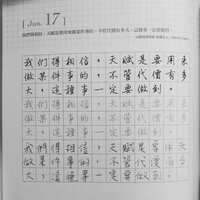 [ Jan. 17 ]
我們得相信，天賦是要用來做某件事的，不管代價有多大，這種事一定要做到。
我們得相信，天賦是要用來
做某件事的，不管代價有多
大，這種事一定要做到。
我們得相信，天賦是要用來
做某件事的，不管代價有多
大，這種事一定要做到。
我們得相信，天賦是要用來
做某件事的，不管代價有多
大，這種事一定要做到。